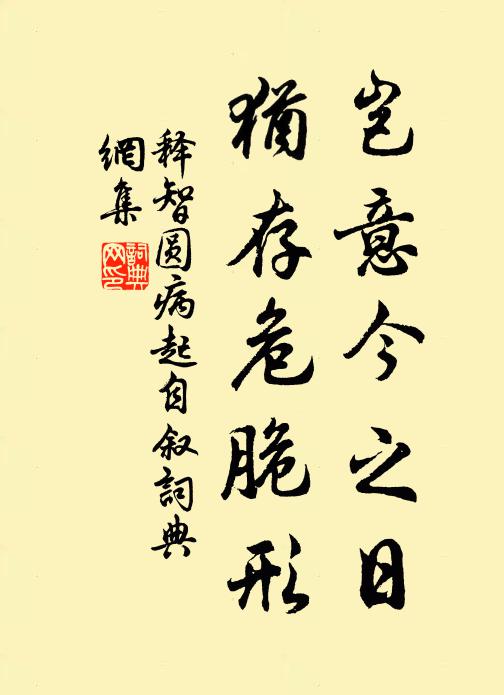 岂意今之日
犹存危脆形
释智圆病起自叙詞典
網集
詞典
网印